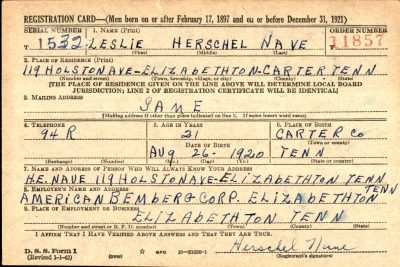 REGISTRATION CARD—(Men born on or after February 17, 1897 and on or before December 31, 1921)
SERIAL NUMBER 1. NAME (Print) ORDER NUMBER
T 1532 LESLIE HERSCHEL NAVE 11857
(First) (Middle) (Last)
2. PLACE OF RESIDENCE (Print)
119 HOLSTON AVE-ELIZABETHTON-CARTER TENN
(Number and street) (Town, township, village, or city) (County) (State)
[THE PLACE OF RESIDENCE GIVEN ON THE LINE ABOVE WILL DETERMINE LOCAL BOARD
JURISDICTION; LINE 2 OF REGISTRATION CERTIFICATE WILL BE IDENTICAL]
3. MAILING ADDRESS
SAME
[Mailing address if other than place indicated on line 2. If same insert word same]
4. TELEPHONE 5. AGE IN YEARS 6. PLACE OF BIRTH
94 R 21 CARTER CO
DATE OF BIRTH (Town or county)
AUG 26- 1920 TENN
(Exchange) (Number) (Mo.) (Day) (Yr.) (State or country)
7. NAME AND ADDRESS OF PERSON WHO WILL ALWAYS KNOW YOUR ADDRESS
H.E. NAVE 119 HOLSTON AVE-ELIZABETHTON TENN
8. EMPLOYER'S NAME AND ADDRESS TENN
AMERICAN BEMBERG CORP. ELIZABETHTON
9. PLACE OF EMPLOYMENT OR BUSINESS
ELIZABETHTON TENN
(Number and street or R. F. D. number) (Town) (County) (State)
I AFFIRM THAT I HAVE VERIFIED ABOVE ANSWERS AND THAT THEY ARE TRUE.
D. S. S. Form 1
(Revised 1-1-42) (over) GPO Herschel Nave
(Registrant's signature)